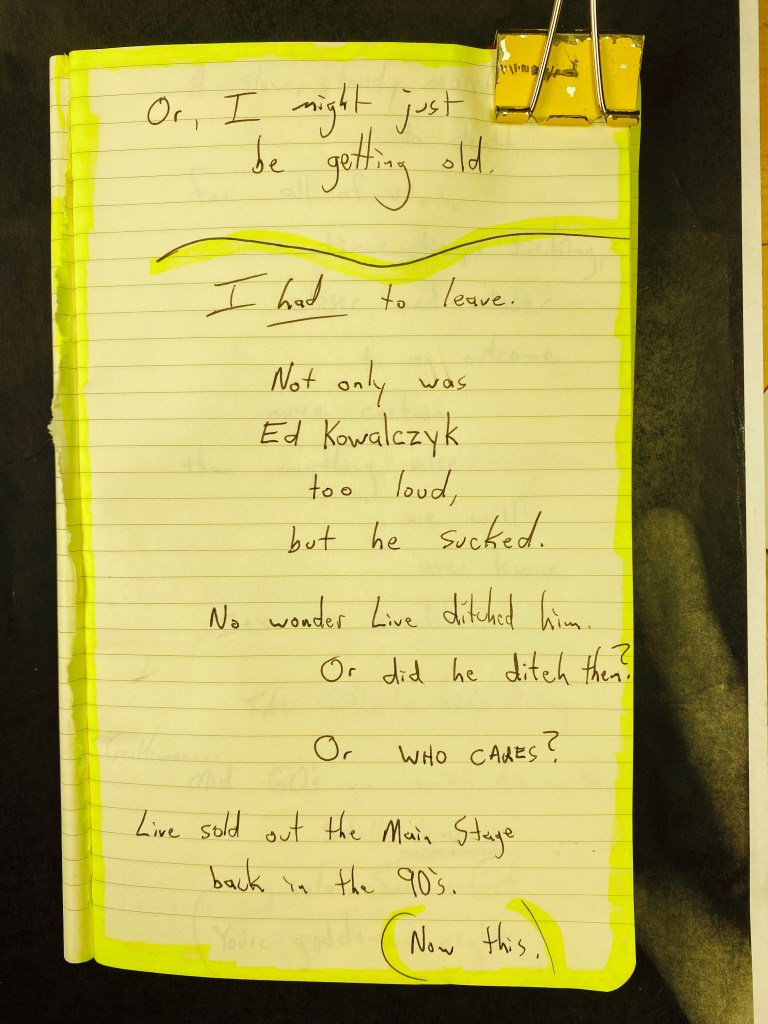 Or, I might just
be getting old.
I had to leave.
Not only was
Ed Kowalczyk
too loud,
but he sucked.
No wonder Live ditched him.
Or did he ditch them?
Or WHO CARES?
Live sold out the Main Stage
back in the 90's.
(Now this.)